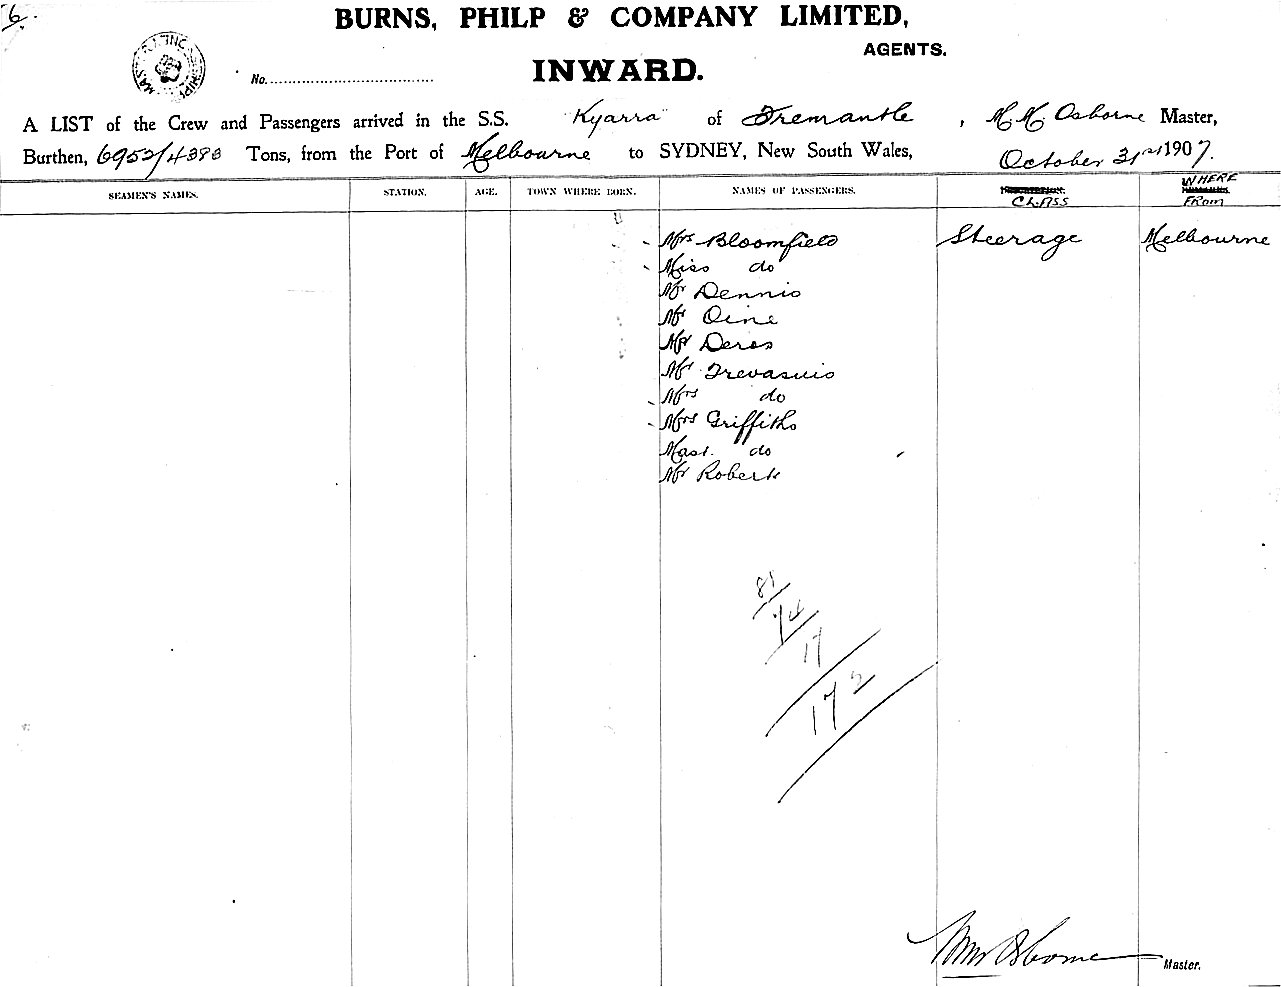 6.
BURNS, PHILP & COMPANY LIMITED,
AGENTS.
INWARD.
No.
A LIST of the Crew and Passengers arrived in the S.S. "Kyarra" of Fremantle, Osborne Master,
Burthen, 6952/4383 Tons, from the Port of Melbourne to SYDNEY, New South Wales, October 31st 1907.
SEAMEN'S NAMES. STATION. AGE. TOWN WHERE BORN. NAMES OF PASSENGERS. CLASS WHERE FROM
Mrs Bloomfield Steerage Melbourne
Miss do
Mr Dennis
Mr Oine
Mr Deros
Mr Trevascuis
Mrs do
Mrs Griffiths
Mast. do
Mr Roberts
81
74
17
172
Osborne Master.